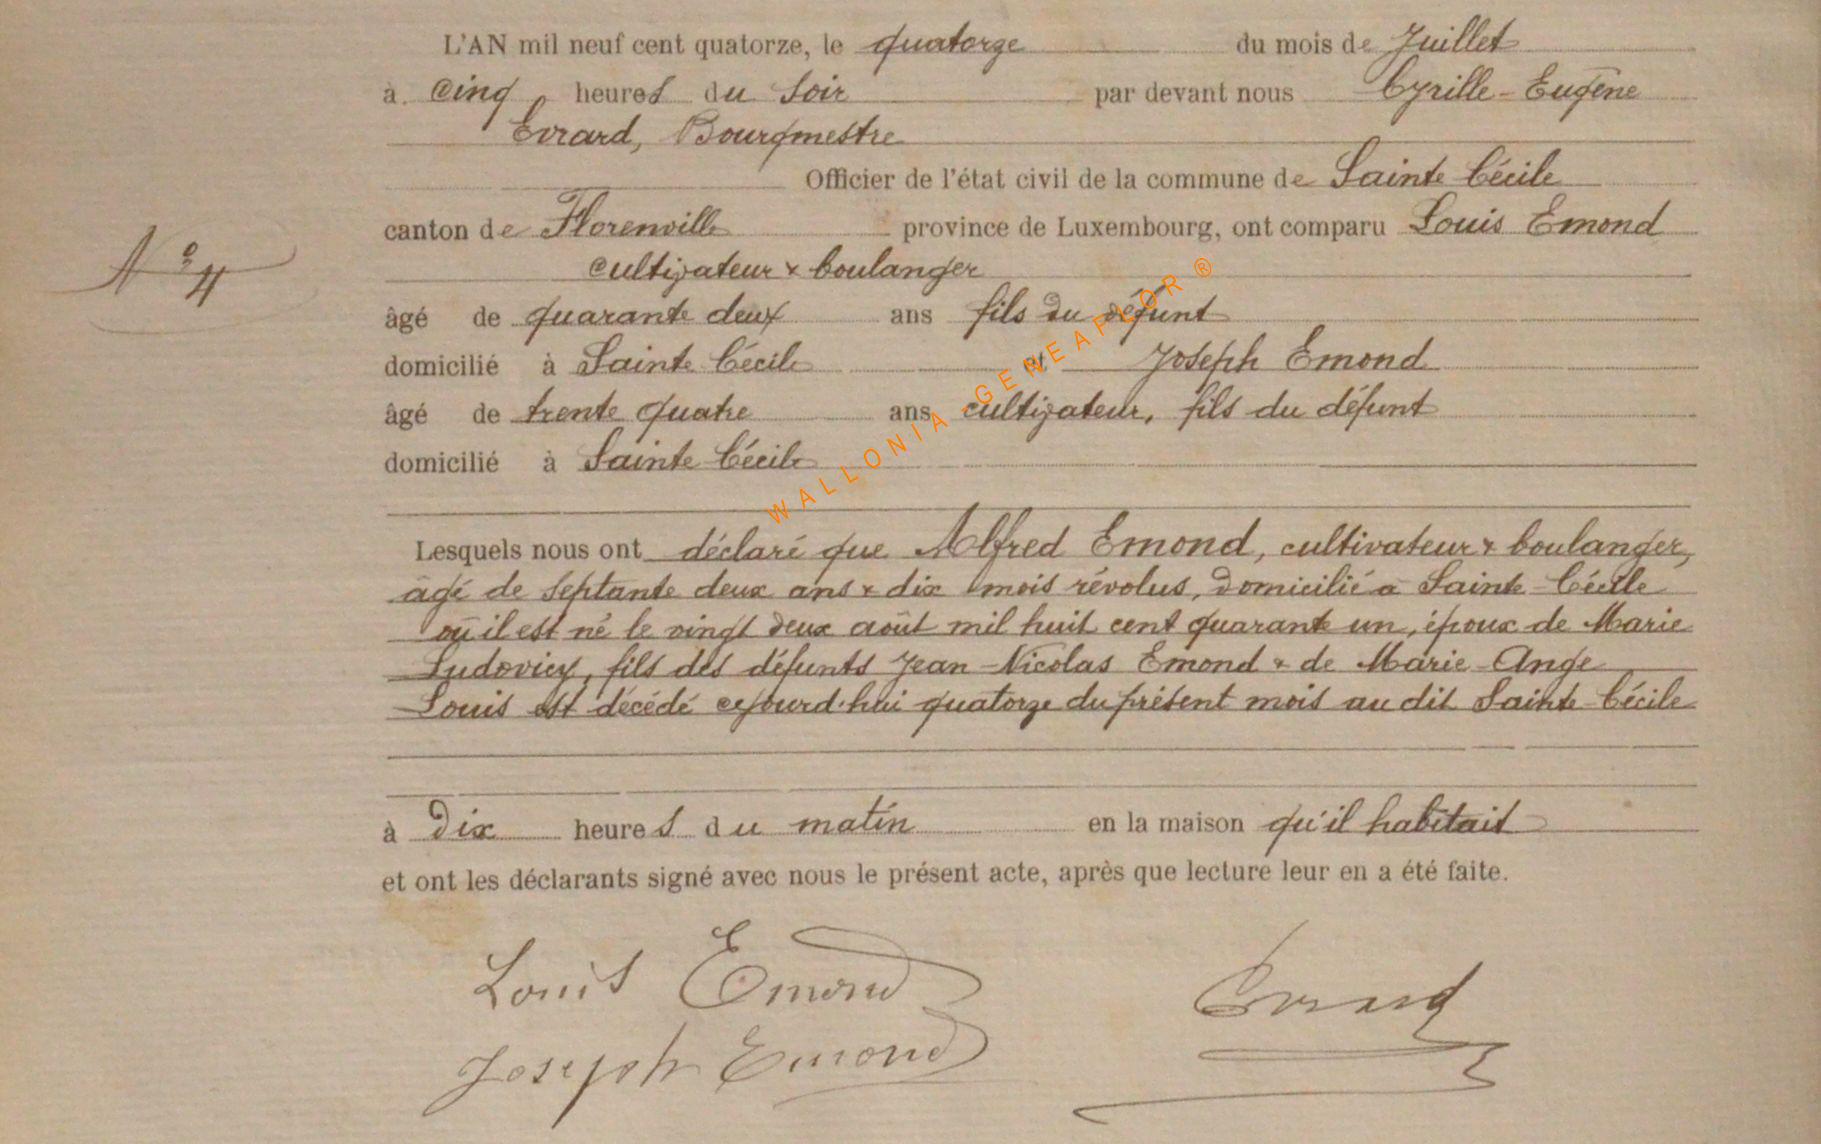 L'AN mil neuf cent quatorze, le quatorze du mois de Juillet
à cinq heures du soir par devant nous Cyrille-Eugène
Evrard, Bourgmestre
Officier de l'état civil de la commune de Sainte Cécile
canton de Florenville province de Luxembourg, ont comparu Louis Emond
N° 4
cultivateur & boulanger
âgé de quarante deux ans fils du défunt
domicilié à Sainte Cécile et Joseph Emond
âgé de trente quatre ans cultivateur, fils du défunt
domicilié à Sainte Cécile
WALLONIA-GENEAFLOR ®
Lesquels nous ont déclaré que Alfred Emond, cultivateur & boulanger,
âgé de septante deux ans & dix mois révolus, domicilié à Sainte-Cécile
où il est né le vingt deux août mil huit cent quarante un, époux de Marie
Ludovicy, fils des défunts Jean-Nicolas Emond & de Marie-Ange
Louis est décédé cejourd'hui quatorze du présent mois au dit Sainte-Cécile
à dix heures du matin en la maison qu'il habitait
et ont les déclarants signé avec nous le présent acte, après que lecture leur en a été faite.
Louis Emond
Evrard
Joseph Emond